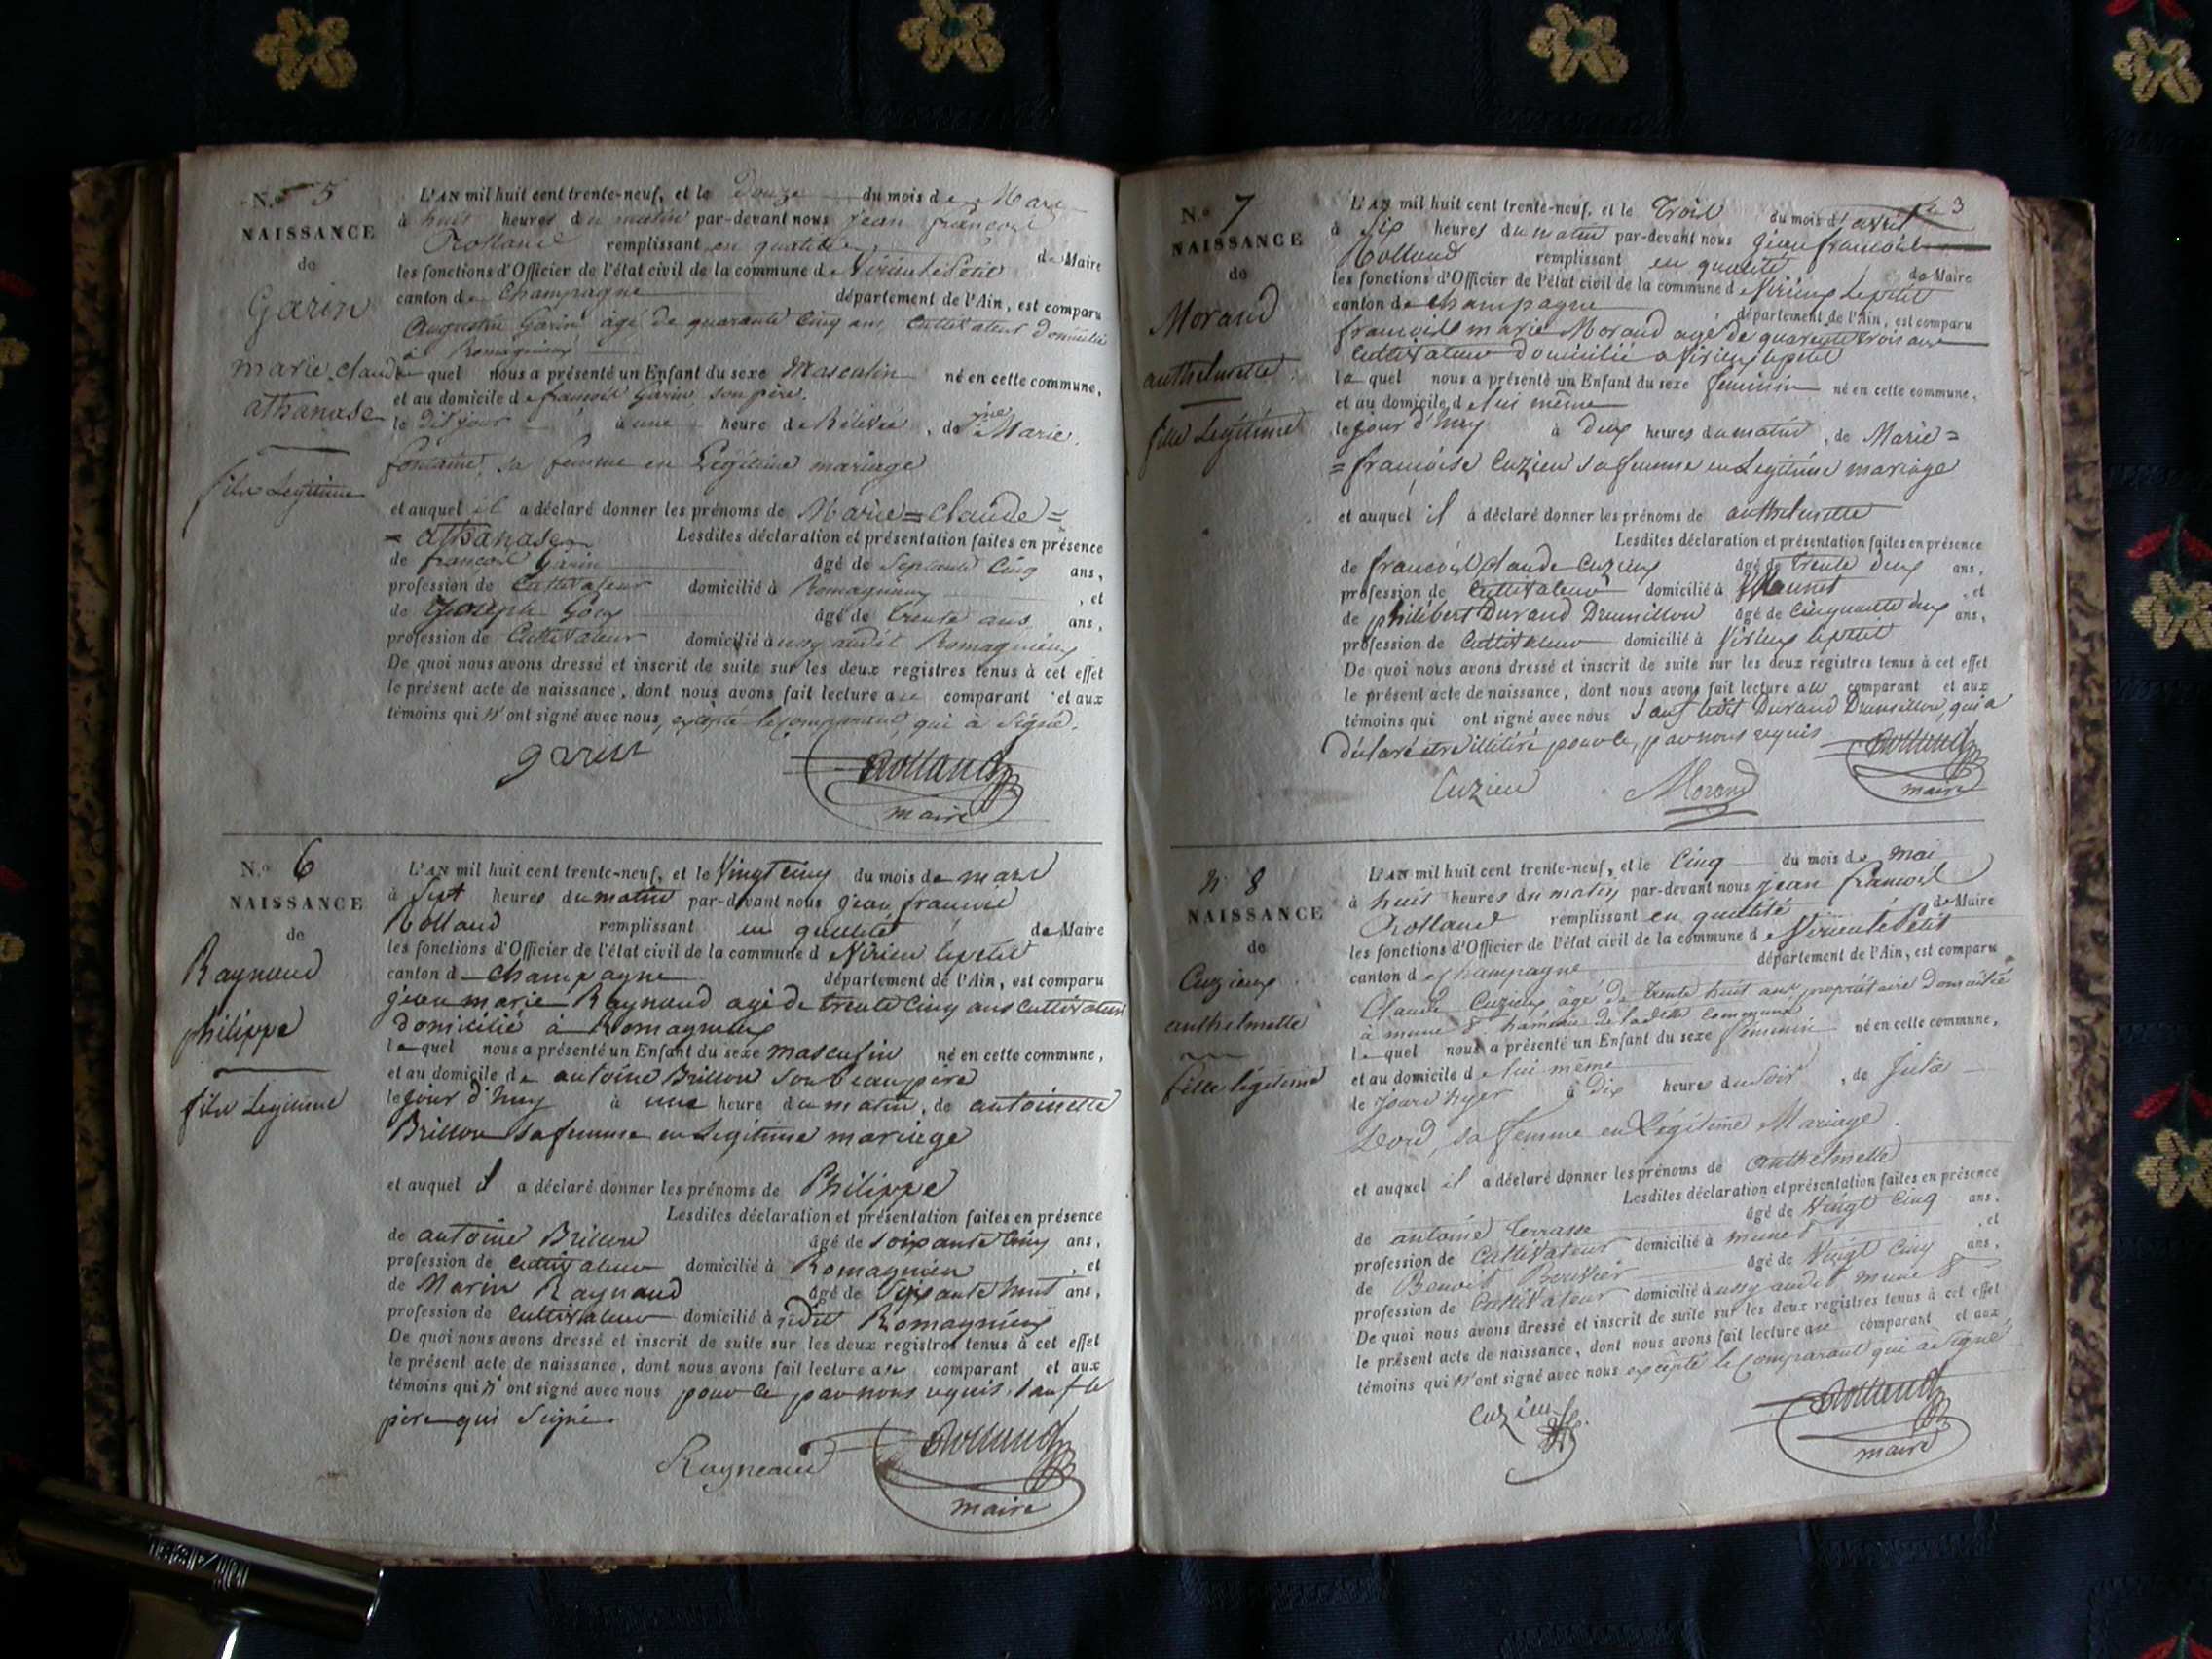 N.º 5
NAISSANCE
de
Garin
marie claude
athanase
fils Legitime
L'AN mil huit cent trente-neuf, et le Douze du mois de Mars
à huit heures du matin par-devant nous jean françois
Rolland remplissant en qualité de Maire
les fonctions d'Officier de l'état civil de la commune de Virieu le Petit
canton de Champagne département de l'Ain, est comparu
Augustin Garin âgé de quarante Cinq ans, Cultivateur Domicilié
à Romagnieux
le quel nous a présenté un Enfant du sexe Masculin né en cette commune,
et au domicile de francois Garin, son père,
le dit jour à une heure de Rélévée, de Marie
fontaine, sa femme en Légitime mariage
et auquel il a déclaré donner les prénoms de Marie = Claude =
= athanase Lesdites déclaration et présentation faites en présence
de françois Garin âgé de Septante Cinq ans,
profession de Cultivateur domicilié à Romagnieux, et
de Joseph Gouy âgé de trente ans, ans,
profession de Cultivateur domicilié à ussy audit Romagnieux
De quoi nous avons dressé et inscrit de suite sur les deux registres tenus à cet effet
le présent acte de naissance, dont nous avons fait lecture au comparant et aux
témoins qui n'ont signé avec nous, excepté le comparant, qui à Signé.
garin Rolland
maire
N.º 6
NAISSANCE
de
Raynaud
philippe
fils Legitime
L'AN mil huit cent trente-neuf, et le Vingt Cinq du mois de mars
à Sept heures du matin par-devant nous jean françois
Rolland remplissant en qualité de Maire
les fonctions d'Officier de l'état civil de la commune de Virieu le petit
canton de Champagne département de l'Ain, est comparu
jean marie Raynaud agé de trente Cinq ans Cultivateur
domicilié à Romagnieux
le quel nous a présenté un Enfant du sexe masculin né en cette commune,
et au domicile de antoine Brillon son beau père
le jour d'huy à une heure du matin, de antoinette
Brillon sa femme en Legitime mariage
et auquel il a déclaré donner les prénoms de Philippe
Lesdites déclaration et présentation faites en présence
de antoine Brillon âgé de soixante Cinq ans,
profession de Cultivateur domicilié à Romagnieu, et
de Marin Raynaud âgé de Soixante huit ans,
profession de Cultivateur domicilié à dit Romagnieux
De quoi nous avons dressé et inscrit de suite sur les deux registres tenus à cet effet
le présent acte de naissance, dont nous avons fait lecture au comparant et aux
témoins qui n'ont signé avec nous pour ce par nous requis, sauf le
père qui Signé.
Rayneaud Rolland
maire
3
N.º 7
NAISSANCE
de
Morand
anthelmette
fille Legitime
L'AN mil huit cent trente-neuf, et le trois du mois d'avril
à Six heures du matin par-devant nous jean françois
Rolland remplissant en qualité de Maire
les fonctions d'Officier de l'état civil de la commune de Virieux le petit
canton de Champagne département de l'Ain, est comparu
françois marie Morand agé de quarente trois ans
Cultivateur domicilié a Virieux le petit
le quel nous a présenté un Enfant du sexe feminin né en cette commune,
et au domicile de lui même
le jour d'huy à deux heures du matin, de Marie =
= françoise Cuzieu sa femme en Legitime mariage
et auquel il a déclaré donner les prénoms de anthelmette
Lesdites déclaration et présentation faites en présence
de françois Claude Cuzieux âgé de trente deux ans,
profession de Cultivateur domicilié à Munet, et
de philibert Durand Drumillon âgé de Cinquante deux ans,
profession de Cultivateur domicilié à Virieux le petit
De quoi nous avons dressé et inscrit de suite sur les deux registres tenus à cet effet
le présent acte de naissance, dont nous avons fait lecture au comparant et aux
témoins qui ont signé avec nous sauf ledit Durand Drumillon, qui a
déclaré être illitéré pour ce, par nous requis Rolland
Cuzieu Morand maire
N 8
NAISSANCE
de
Cuzieux
anthelmette
fille légitime
L'AN mil huit cent trente-neuf, et le Cinq du mois de mai
à huit heures du matin par-devant nous jean françois
Rolland remplissant en qualité de Maire
les fonctions d'Officier de l'état civil de la commune de Virieu le Petit
canton de Champagne département de l'Ain, est comparu
Claude Cuzieux âgé de trente huit ans propriétaire Domicilié
à munet hameau de ladite commune
le quel nous a présenté un Enfant du sexe féminin né en cette commune,
et au domicile de lui même
le jour d'hyer à Dix heures du Soir, de Julie
sa femme en Légitime Mariage.
et auquel il a déclaré donner les prénoms de Anthelmette
Lesdites déclaration et présentation faites en présence
de antoine Terrasse âgé de Vingt Cinq ans,
profession de Cultivateur domicilié à munet, et
de Benoit Bouvier âgé de Vingt Cinq ans,
profession de Cultivateur domicilié à ussy audit munet
De quoi nous avons dressé et inscrit de suite sur les deux registres tenus à cet effet
le présent acte de naissance, dont nous avons fait lecture au comparant et aux
témoins qui n'ont signé avec nous excepté le comparant qui a Signé
Cuzieu Rolland
maire